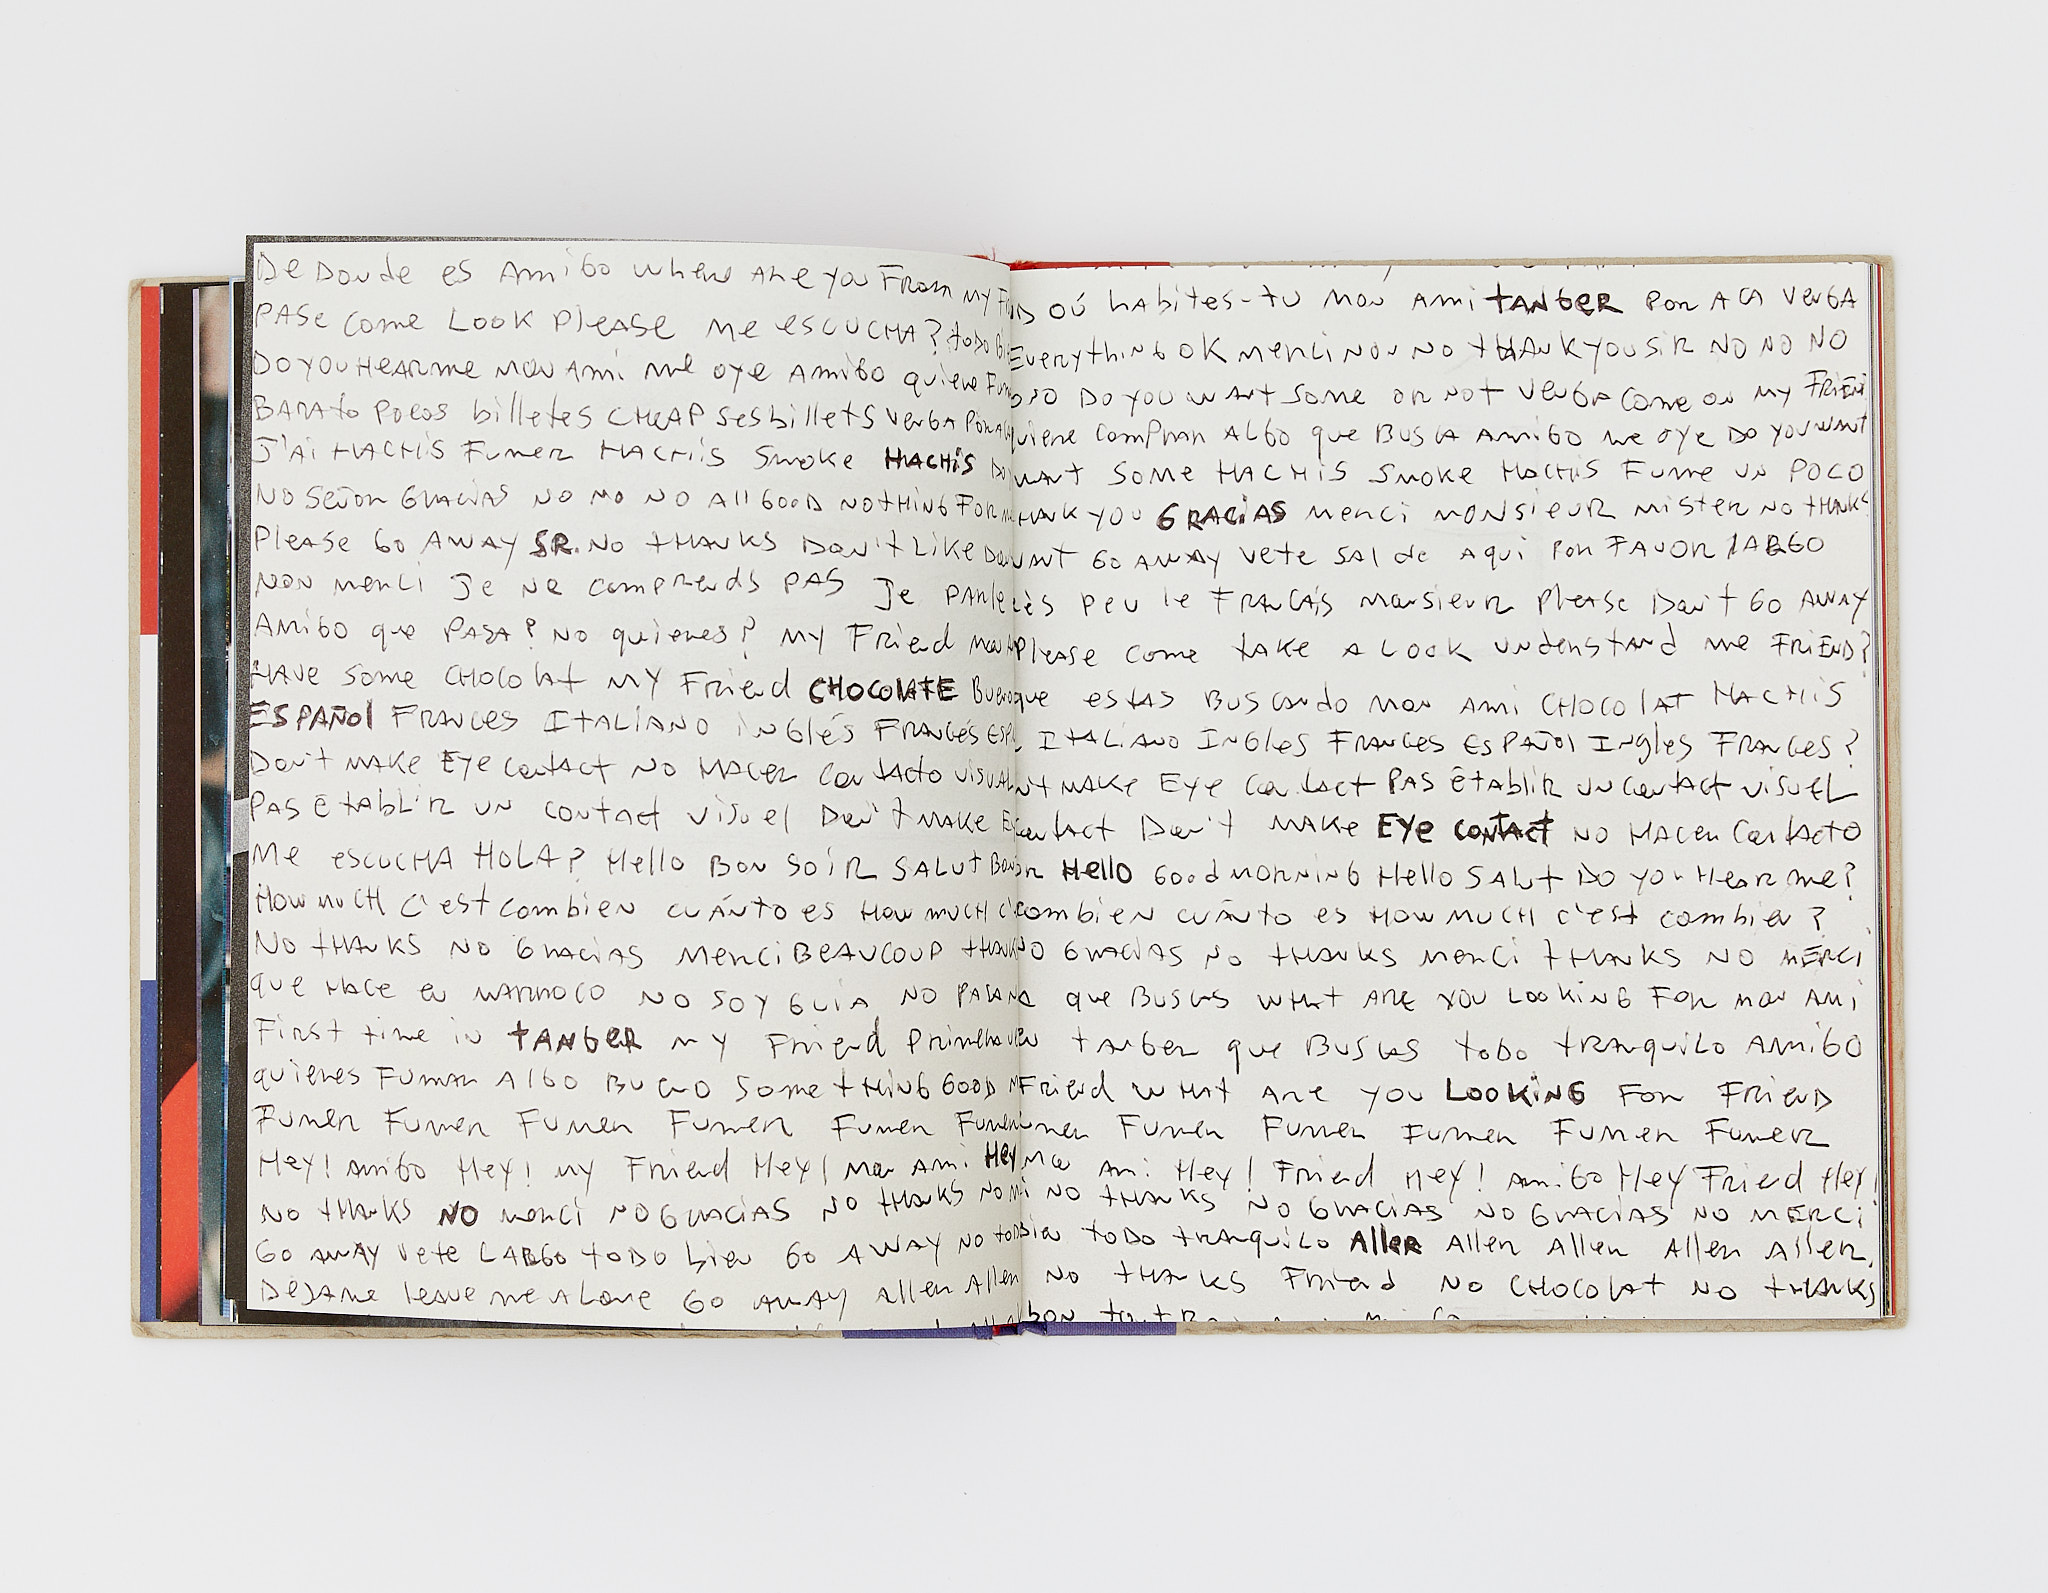 De Donde es Amigo where are you From my
PASe come Look please me escucha? todo
Do you Hear me mon Ami me oye Amigo quiere
BARAto pocos billetes CHeAP ses billets verga por
J'Ai HACHiS Fumer HACHiS Smoke HACHiS
No Señor Gracias no no no All Good nothing For
Please Go Away SR. No thanks Don't Like
Non merci Je ne comprends PAS Je parle
Amigo que PASA? No quieres? My Friend
Have some CHOColat My Friend CHOCOlATE
ESPAÑOl FRANCES ITALiANO inglés FRANcés
Don't make Eye contact no HACer contacto visual
PAS établir un contact visuel Don't make
Me escucha HOLA? Hello Bon soir SALUt
How much c'est combien cuánto es How much
No thanks no Gracias merci BEAUCOUP
que HACe en MARROCO no soy GUIA no
First time in tANGER my Friend
quieres Fumar Algo Bueno Something GOOD
Fumer Fumer Fumer Fumer Fumer Fumer
Hey! Amigo Hey! my Friend Hey! Mon Ami Hey
No thanks NO merci no Gracias no thanks
Go away vete LARGO toDO bien Go AWAY no
DeJAme leave me Alone Go away Allen Allen
D'où habites-tu mon ami tANGER por ACA verGA
Everything OK merci non no thank you SiR NO NO NO
Do you want some or not verGA come on my FRiEN
quiere comprar ALGO que BUSCA Amigo me oye Do you want
want some HACHiS Smoke HACHiS Fume un POCO
you GRACiAS merci monsieur mister no thanks
Go away vete SAL de Aqui por FAVOR LARGO
très peu le FRANCAiS monsieur please Don't Go AWAY
Please come take A Look understand me FRiEND?
que estas Buscando mon Ami CHOColAt HACHiS
ITALiANO INGles FRANCes ESPAÑOl INgles FRANCes?
make Eye contact PAS établir un contact visuEL
contact Don't make EYe CONTACT no HACer contacto
Hello Good morning Hello SALUt Do you Hear me?
combien cuánto es How much c'est combien?
no Gracias no thanks merci thanks no MERCi
que BUSCAS what ARE you LOOKiNG For mon Ami
tanger que BUSCAS toDo tRAnquiLo AmiGO
Friend what Are you LOOKiNG For FRiEnD
Fumer Fumer Fumer Fumer Fumer
Mon Ami Hey! Friend Hey! Amigo Hey Friend Hey!
no thanks no Gracias no Gracias no MERCi
toDo tranquilo Aller Allen Allen Allen Allen.
No thanks Friend no CHOColAt no thanks